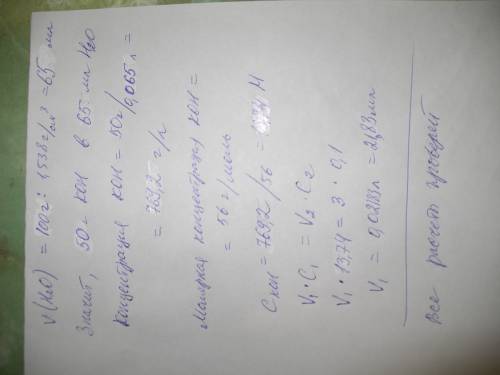 V(H2O) = 100г : 1,538 г/см³ = 65 мл
Значит, 50г KOH в 65 мл H2O
Концентрация KOH = 50г/0,065л =
= 769,2 г/л
Молярная концентрация KOH =
= 56 г/моль
C KOH = 769,2/56 = 13,74 М
V1 · C1 = V2 · C2
V1 · 13,74 = 3 · 0,1
V1 = 0,02183л = 21,83мл
Все расчёты проверяй